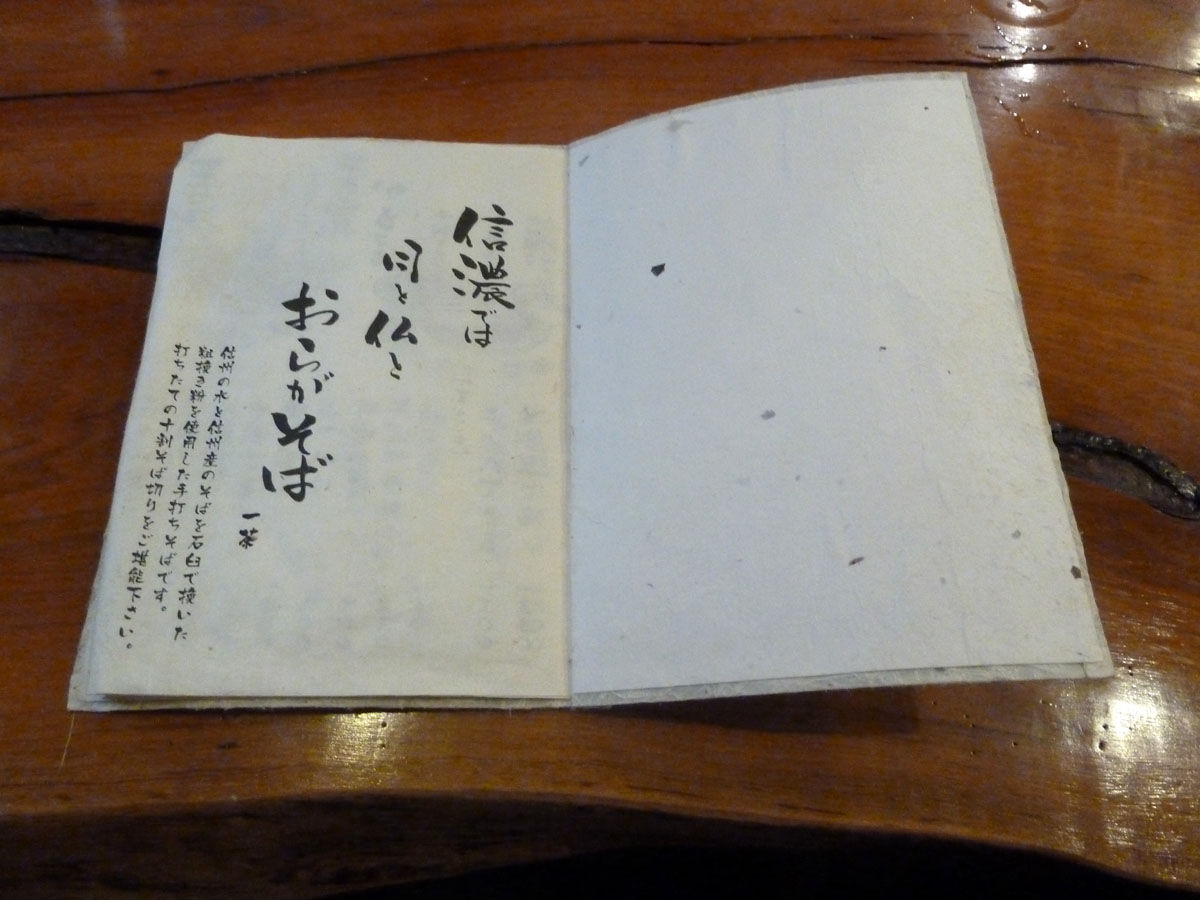 信濃では
月と仏と
おらがそば
一茶
信州の水と信州産のそばを石臼で挽いた
粗挽き粉を使用した手打ちそばです。
打ちたての十割そば切りをご堪能下さい。